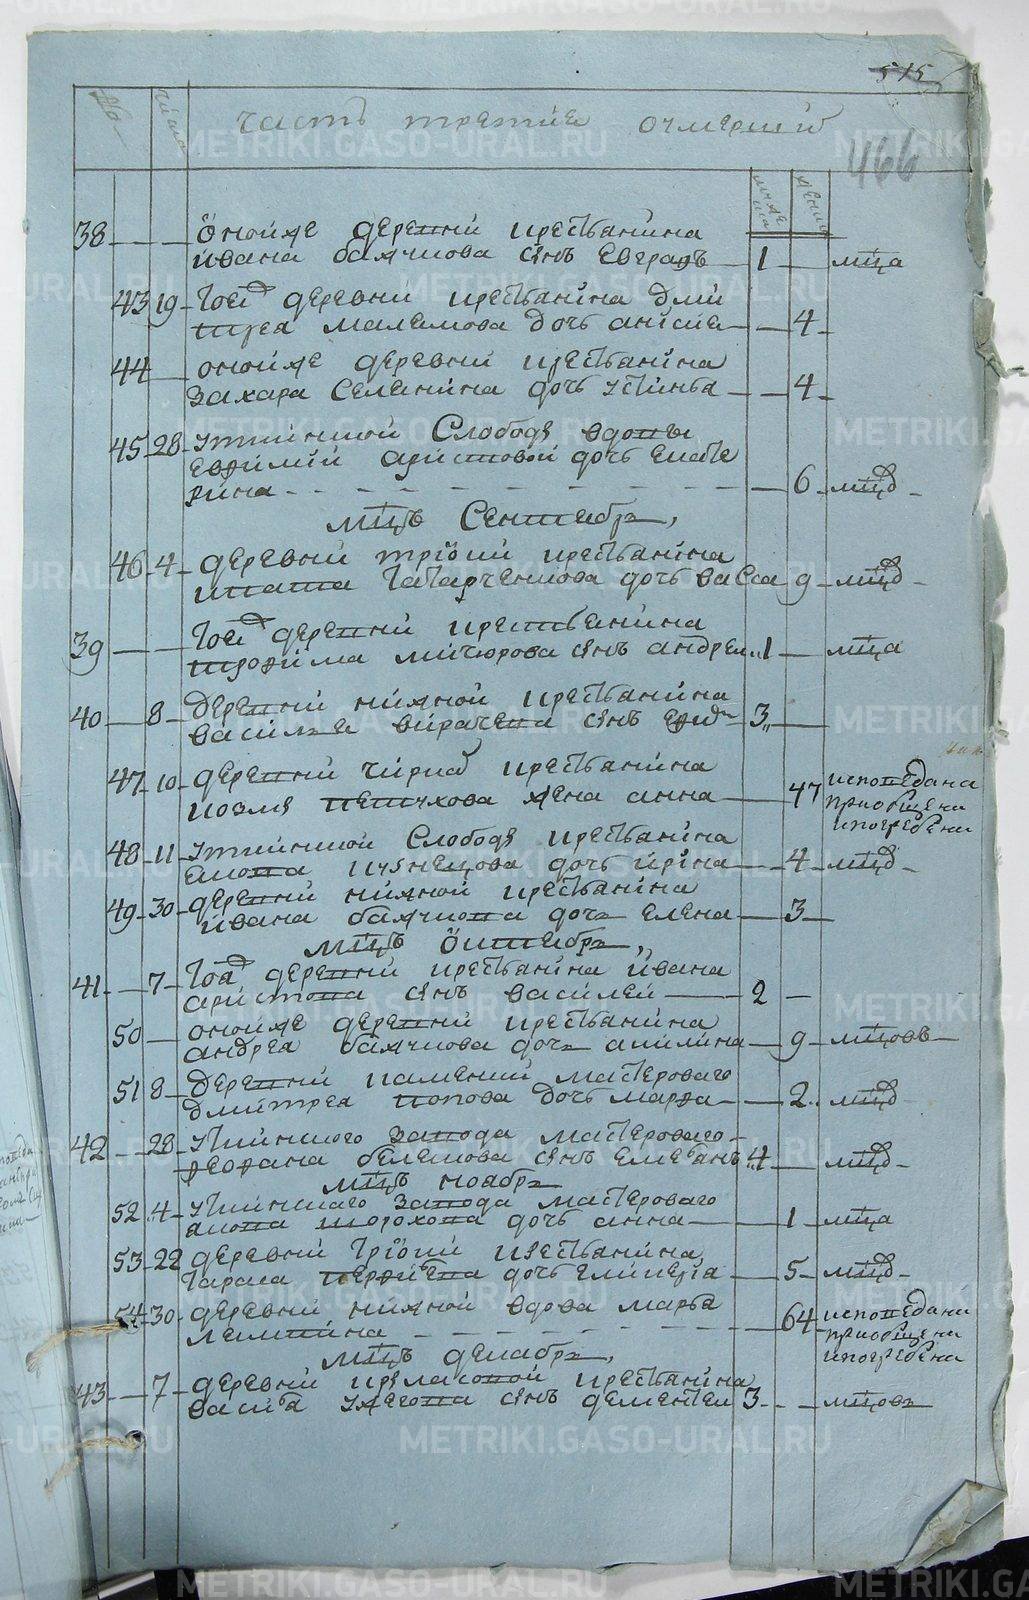 515
466
№ числа часть третие очмерший
мужеска женска
38 оной же деревни крестьянина
ивана бажчкова снъ Евграфъ 1 мца
43 19 Той деревни крестьянина дми
трея малемова дочь анисие 4
44 оной же деревни крестьянина
захара Селенина дочь устинья 4
45 28 уткинской Слободы вдовы
Евфимии аристовой дочь екате
рина 6 мцд
мцъ Сентебрь
46 4 деревни треки крестьянина
игната Татарченкова дочь васса 9 мцд
39 Той деревни крестьянина
трофима мичюрова снъ андреи 1 мца
40 8 деревни нижной крестьянина
василья вирачева снъ 3
47 10 деревни чирки крестьянина
козмы петухова жена анна 47 исповедана
приобщена
и погребена
48 11 уткинской Слободы крестьянина
якова кузнецова дочь ирина 4 мцд
49 30 деревни нижной крестьянина
ивана бажчкова дочь елена 3
мцъ Октебрь
41 7 Той деревни крестьянина ивана
аристова снъ василей 2
50 оной же деревни крестьянина
андрея бажчкова дочь акилина 9 мцовъ
51 8 деревни каменки мастероваго
дмитрея попова дочь марфа 2 мцд
42 28 уткинского завода мастероваго
феофана белешова снъ емельянъ 4 мцд
мцъ ноябрь
52 4 уткинского завода мастероваго
якова шорохова дочь анна 1 мца
53 22 деревни треки крестьянина
тараса дочь гликерия 5 мцд
54 30 деревни нижной вдова марья
лямпина 64 исповедана
приобщена
и погребена
мцъ декабрь
43 7 деревни крыласовой крестьянина
василья ужегова снъ дементеи 3 мцовъ
METRIKI.GASO-URAL.RU